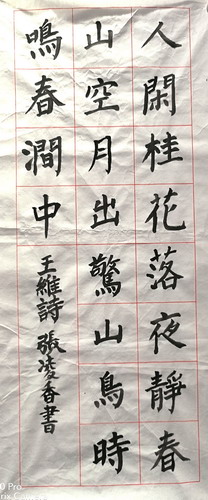 人閑桂花落夜靜春
山空月出驚山鳥時
鳴春澗中
王維詩 張凌香書